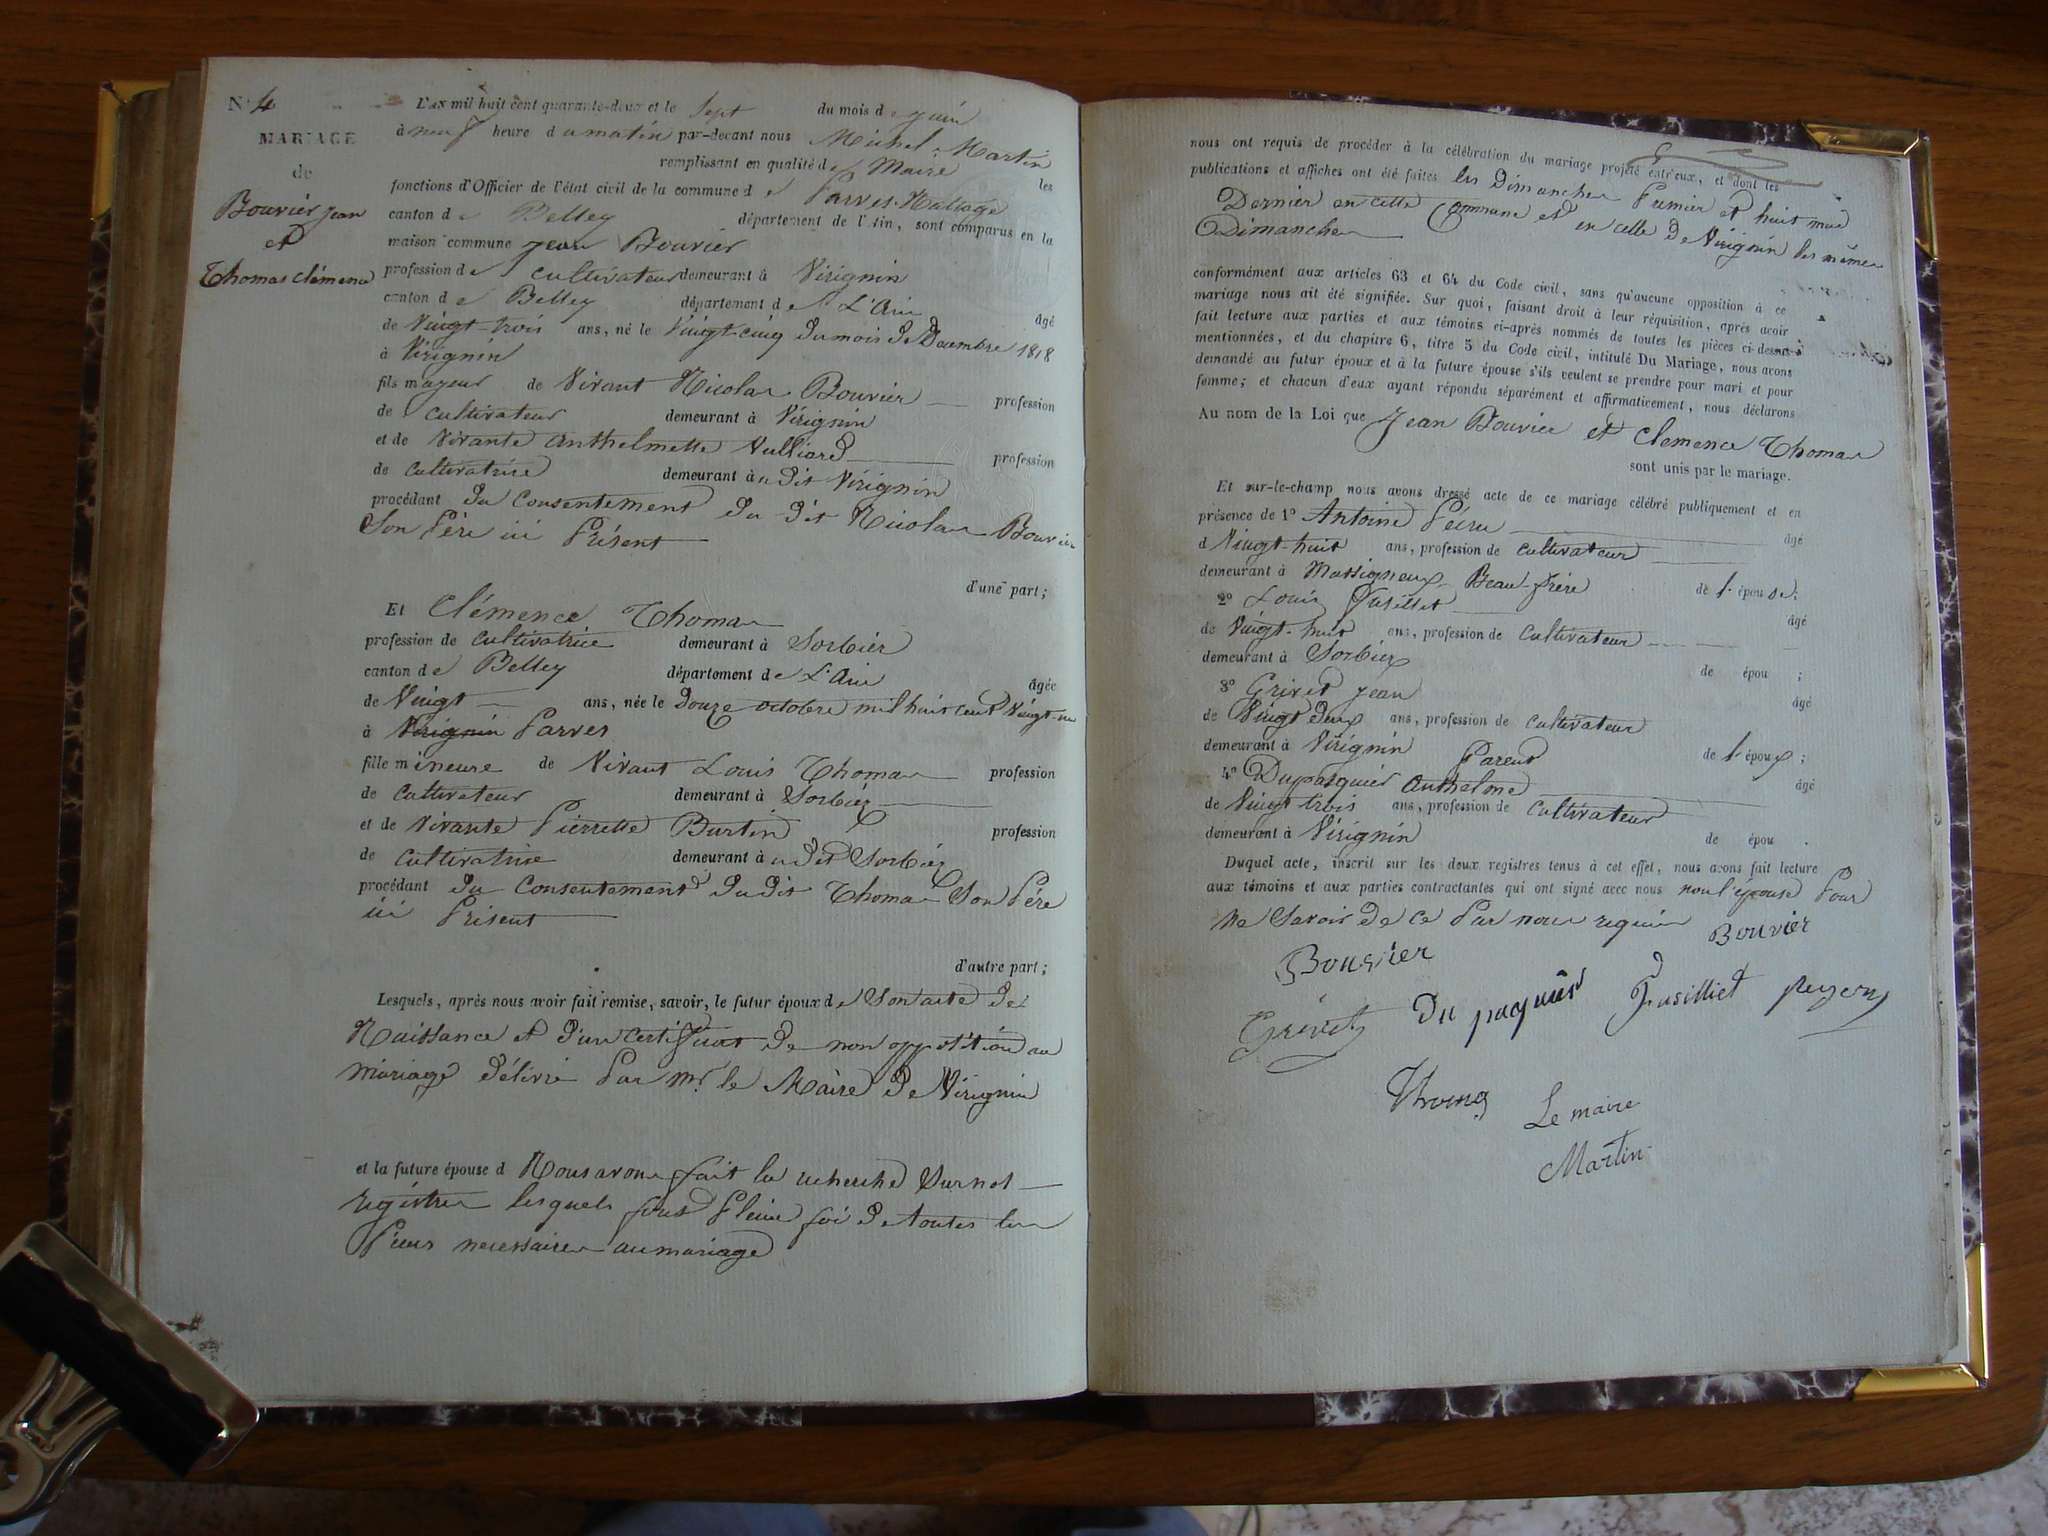 N° 4
MARIAGE
de
Bouvier Jean
et
Thomas Clémence
L'an mil huit cent quarante-deux et le sept du mois de juin
à neuf heure du matin par-devant nous Michel Martin
remplissant en qualité de Maire les
fonctions d'Officier de l'état civil de la commune de Parves-Nattage
canton de Belley département de l'Ain, sont comparus en la
maison commune Jean Bouvier
profession de cultivateur demeurant à Virignin
canton de Belley département de L'Ain âgé
de Vingt-trois ans, né le Vingt-cinq du mois de Decembre 1818
à Virignin
fils mayeur de Vivant Nicolas Bouvier profession
de cultivateur demeurant à Virignin
et de Vivante Anthelmette Vulliard profession
de cultivatrice demeurant àudit Virignin
procédant du Consentement du dit Nicolas Bouvier
Son Père ici Présent
d'une part;
Et Clémence Thomas
profession de cultivatrice demeurant à Sorbier
canton de Belley département de L'Ain âgée
de Vingt ans, née le douze octobre mil huit cent Vingt-un
à Virignin Parves
fille mineure de Vivant Louis Thomas profession
de Cultivateur demeurant à Sorbiez
et de Vivante Pierrette Burtin profession
de cultivatrice demeurant àudit Sorbiez
procédant du Consentement dudit Thomas Son Père
ici Présent
d'autre part;
Lesquels, après nous avoir fait remise, savoir, le futur époux de Son acte de
Naissance et d'un certificat de non opposition au
mariage délivré Par Mr. le Maire de Virignin
et la future épouse d Nous avons fait la recherche Sur nos
registres lesquels font Pleine foi de toutes les
Pièces necessaires au mariage
nous ont requis de procéder à la célébration du mariage projeté entr'eux, et dont les
publications et affiches ont été faites les Dimanches Premier et huit mai
Dernier en cette Commune et en celle de Virignin les mêmes
Dimanches
conformément aux articles 63 et 64 du Code civil, sans qu'aucune opposition à ce
mariage nous ait été signifiée. Sur quoi, faisant droit à leur réquisition, après avoir
fait lecture aux parties et aux témoins ci-après nommés de toutes les pièces ci-dessus
mentionnées, et du chapitre 6, titre 5 du Code civil, intitulé Du Mariage, nous avons
demandé au futur époux et à la future épouse s'ils veulent se prendre pour mari et pour
femme; et chacun d'eux ayant répondu séparément et affirmativement, nous déclarons
Au nom de la Loi que Jean Bouvier et Clemence Thomas
sont unis par le mariage.
Et sur-le-champ nous avons dressé acte de ce mariage célébré publiquement et en
présence de 1° Antoine âgé
d Vingt-huit ans, profession de cultivateur
demeurant à Massigneux Beau-frère de l'épouse;
2° Louis Fusilliet âgé
de Vingt-huit ans, profession de Cultivateur
demeurant à Sorbiez de épou ;
3° Grivet Jean âgé
de Vingt deux ans, profession de cultivateur
demeurant à Virignin Parent de l'époux;
4° Dupasquier Anthelme âgé
de Vingt trois ans, profession de Cultivateur
demeurant à Virignin de épou .
Duquel acte, inscrit sur les deux registres tenus à cet effet, nous avons fait lecture
aux témoins et aux parties contractantes qui ont signé avec nous non l'épouse Pour
ne Savoir de ce Par nous requise
Bouvier Bouvier
Grivet Du paquier Fusilliet
Thomas
Le maire
Martin